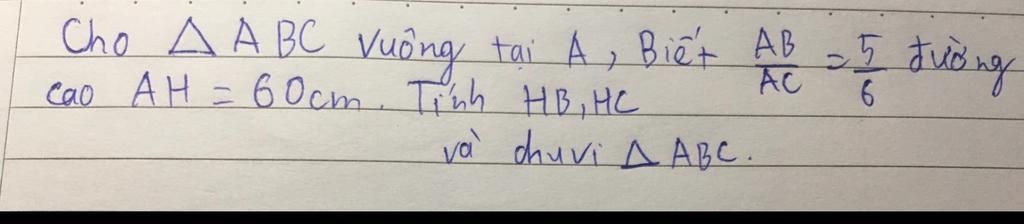 Cho △ ABC vuông tại A, Biết AB/AC = 5/6 đường
cao AH = 60cm. Tính HB, HC
và chu vi △ ABC.